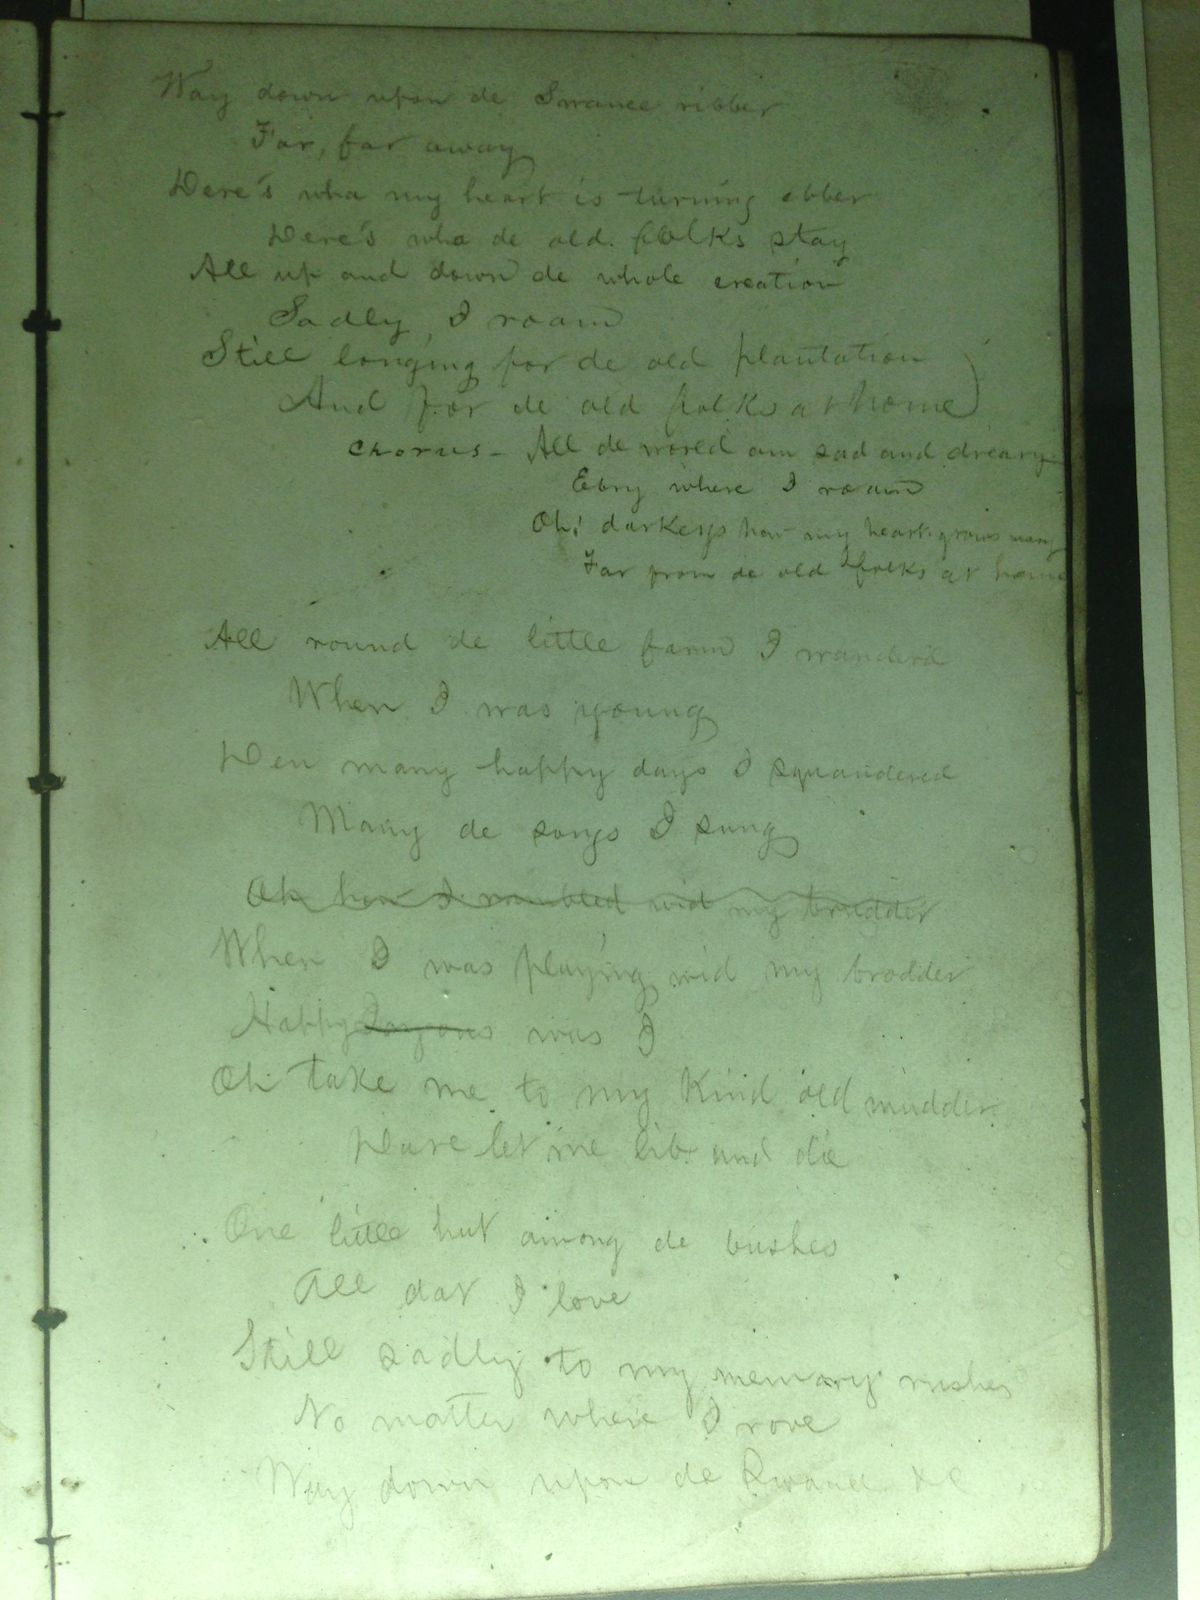 Way down upon de Swanee ribber
Far, far away
Dere's wha my heart is turning ebber
Dere's wha de old folks stay
All up and down de whole creation
Sadly I roam
Still longing for de old plantation
And for de old folks at home
Chorus - All de world am sad and dreary
Ebry where I roam
Oh! darkeys how my heart grows weary
Far from de old folks at home
All round de little farm I wander'd
When I was young
Den many happy days I squandered
Many de songs I sung
Oh how I rambled wid my brudder
When I was playing wid my brodder
Happy was I
Oh take me to my kind old mudder
Dare let me lib and die
One little hut among de bushes
All dat I love
Still sadly to my memory rushes
No matter where I rove
Way down upon de Swanee &c